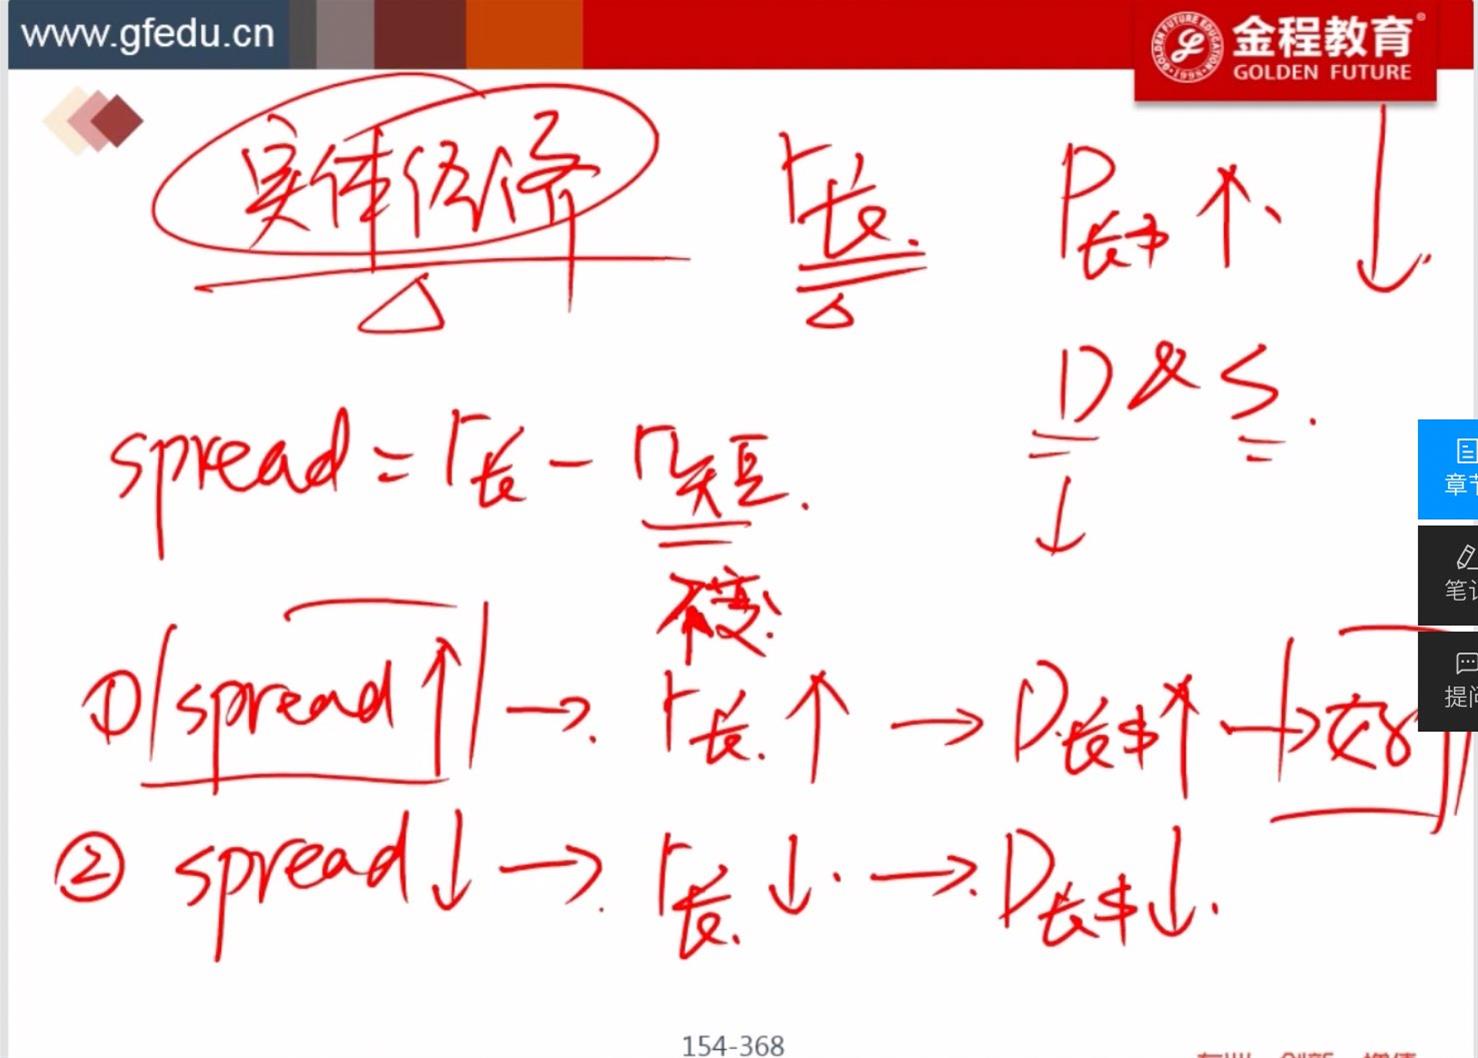 www.gfedu.cn
金程教育
GOLDEN FUTURE
实体经济 r长 P长$ ↑ ↓
D & S
spread = r长 - r短
↓
不变
① spread ↑ → r长 ↑ → D长$ ↑ → 好
② spread ↓ → r长 ↓ → D长$ ↓
章节
笔记
提问
154-368